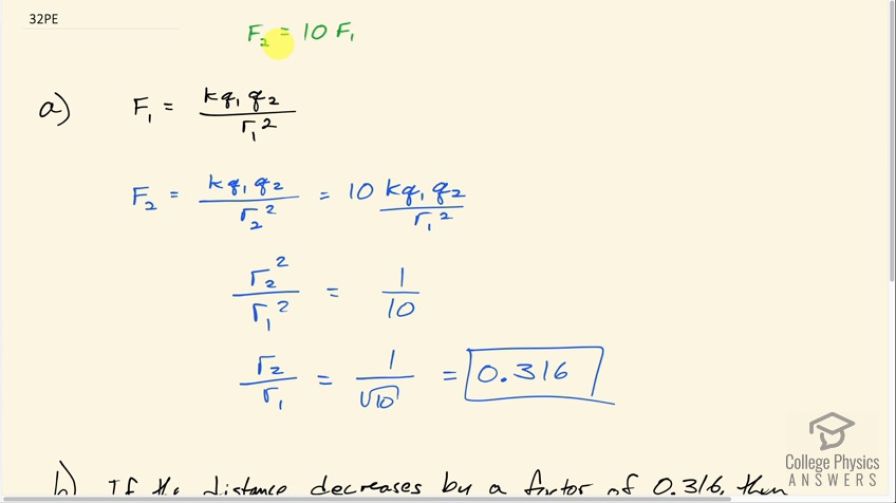 32PE
F₂ = 10 F₁
a) F₁ = kq₁q₂ / r₁²
F₂ = kq₁q₂ / r₂² = 10 kq₁q₂ / r₁²
r₂² / r₁² = 1 / 10
r₂ / r₁ = 1 / √10 = 0.316
b) If the distance decreases by a factor of 0.316, then
College Physics
ANSWERS